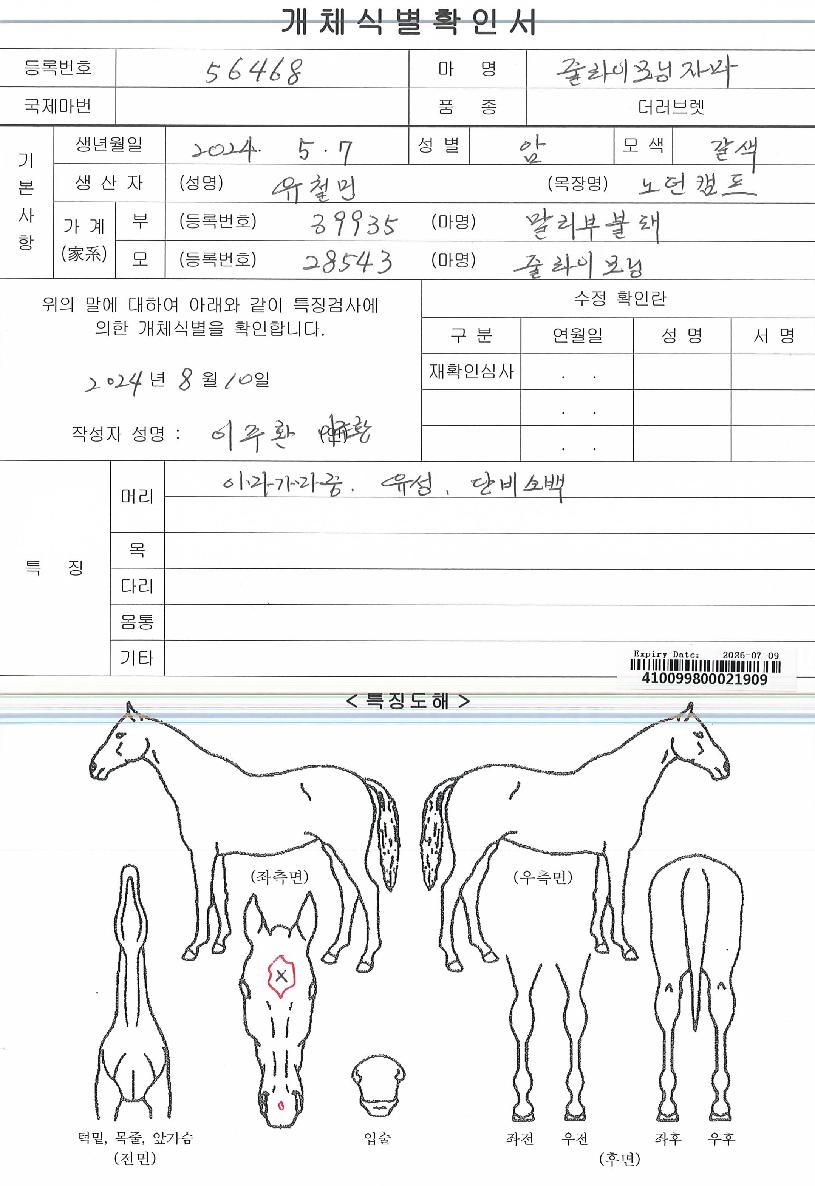 개체식별확인서
등록번호 56468 마 명 줄라이모닝자마
국제마번 품 종 더러브렛
기본사항
생년월일 2024. 5. 7 성 별 암 모 색 갈색
생 산 자 (성명) 유철민 (목장명) 노던캠프
가 계 (家系) 부 (등록번호) 39935 (마명) 말리부볼대
모 (등록번호) 28543 (마명) 줄라이모닝
위의 말에 대하여 아래와 같이 특징검사에
의한 개체식별을 확인합니다.
2024년 8월 10일
작성자 성명 : 이주환
수정 확인란
구 분 연월일 성 명 서 명
재확인심사 . .
. .
. .
특 징
머리 이마가마공. 유성. 단비소백
목
다리
몸통
기타
Expiry Date: 2026-07-09
410099800021909
<특징도해>
(좌측면) (우측면)
X
턱밑, 목줄, 앞가슴 입술 좌전 우전 좌후 우후
(전면) (후면)